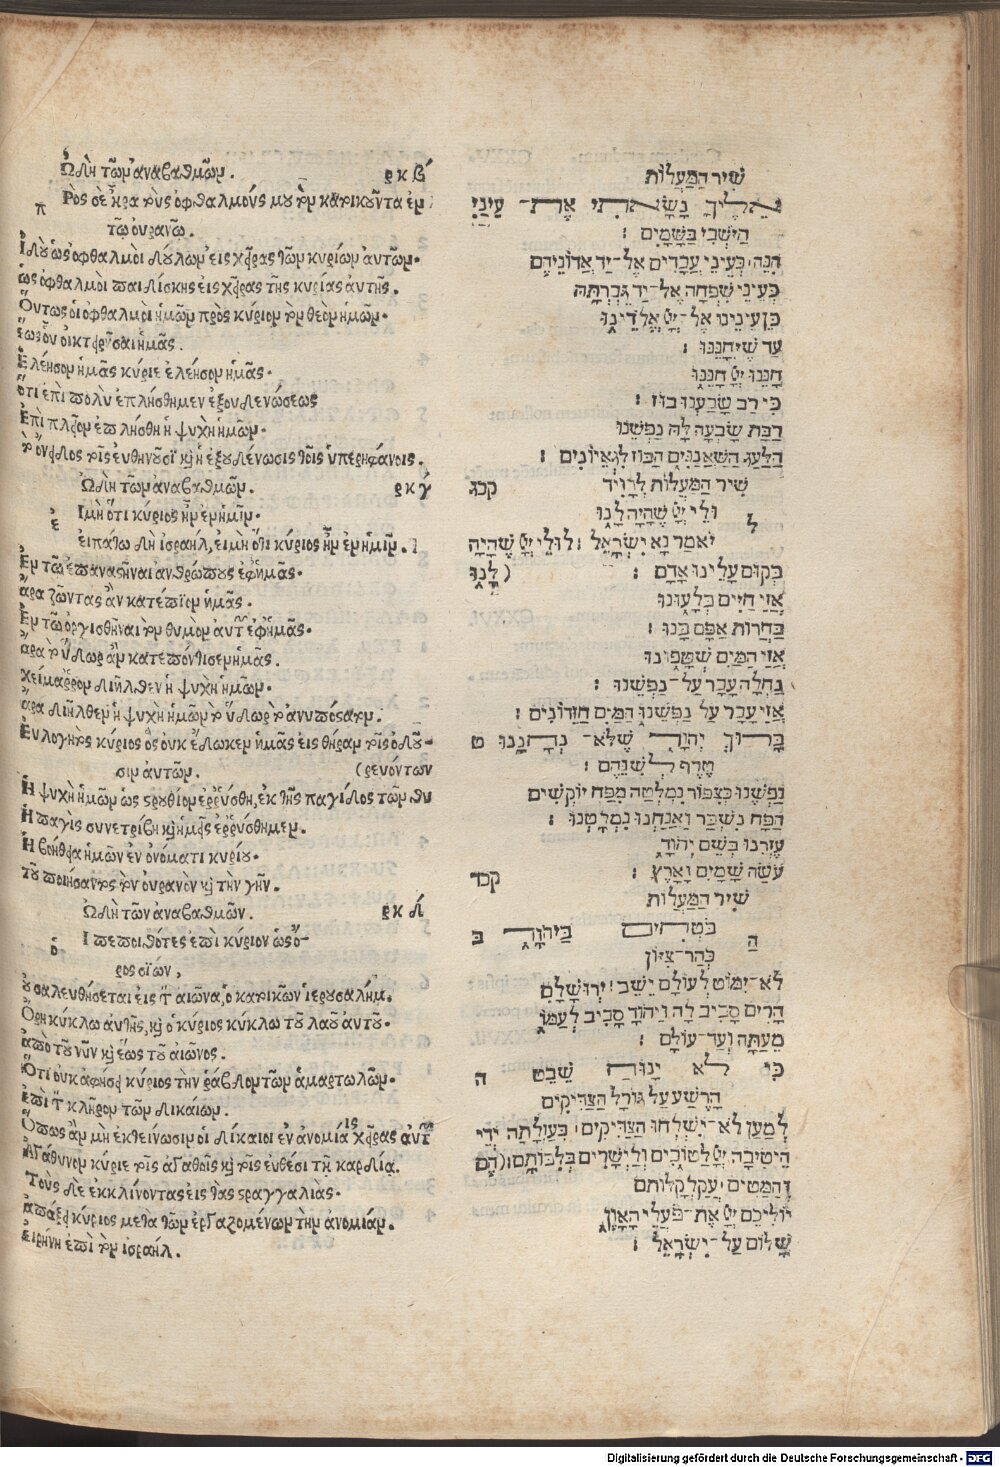 ὨΔὴ τῶν ἀναβαθμῶν. ρκβ
Πρὸς σὲ ἦρα τοὺς ὀφθαλμούς μου τὸν κατοικοῦντα ἐν
τῷ οὐρανῷ.
Ἰδοὺ ὡς ὀφθαλμοὶ δούλων εἰς χεῖρας τῶν κυρίων αὐτῶν.
ὡς ὀφθαλμοὶ παιδίσκης εἰς χεῖρας τῆς κυρίας αὐτῆς.
Οὕτως οἱ ὀφθαλμοὶ ἡμῶν πρὸς κύριον τὸν θεὸν ἡμῶν.
ἕως οὗ οἰκτειρῆσαι ἡμᾶς.
Ἐλέησον ἡμᾶς κύριε ἐλέησον ἡμᾶς.
ὅτι ἐπὶ πολὺ ἐπλήσθημεν ἐξουδενώσεως
Ἐπὶ πλεῖον ἐπλήσθη ἡ ψυχὴ ἡμῶν.
τὸ ὄνειδος τοῖς εὐθηνοῦσι καὶ ἡ ἐξουδένωσις τοῖς ὑπερηφάνοις.
ὨΔὴ τῶν ἀναβαθμῶν. ρκγ
Εἰ μὴ ὅτι κύριος ἦν ἐν ἡμῖν.
εἰπάτω δὴ ἰσραήλ, εἰ μὴ ὅτι κύριος ἦν ἐν ἡμῖν.
Ἐν τῷ ἐπαναστῆναι ἀνθρώπους ἐφ' ἡμᾶς.
ἄρα ζῶντας ἂν κατέπιον ἡμᾶς.
Ἐν τῷ ὀργισθῆναι τὸν θυμὸν αὐτῶν ἐφ' ἡμᾶς.
ἄρα τὸ ὕδωρ ἂν κατεπόντισεν ἡμᾶς.
χείμαρρον διῆλθεν ἡ ψυχὴ ἡμῶν.
ἄρα διῆλθεν ἡ ψυχὴ ἡμῶν τὸ ὕδωρ τὸ ἀνυπόστατον.
Εὐλογητὸς κύριος ὃς οὐκ ἔδωκεν ἡμᾶς εἰς θήραν τοῖς ὀδοῦ-
σιν αὐτῶν. (ρευόντων
Ἡ ψυχὴ ἡμῶν ὡς στρουθίον ἐρρύσθη, ἐκ τῆς παγίδος τῶν θη
Ἡ παγὶς συνετρίβη καὶ ἡμεῖς ἐρρύσθημεν.
Ἡ βοήθεια ἡμῶν ἐν ὀνόματι κυρίου.
τοῦ ποιήσαντος τὸν οὐρανὸν καὶ τὴν γῆν.
ὨΔὴ τῶν ἀναβαθμῶν. ρκδ
Οἱ πεποιθότες ἐπὶ κύριον ὡς ὄ-
ρος σιών,
οὐ σαλευθήσεται εἰς τὸν αἰῶνα, ὁ κατοικῶν ἱερουσαλήμ.
Ὄρη κύκλῳ αὐτῆς, καὶ ὁ κύριος κύκλῳ τοῦ λαοῦ αὐτοῦ.
ἀπὸ τοῦ νῦν καὶ ἕως τοῦ αἰῶνος.
Ὅτι οὐκ ἀφήσει κύριος τὴν ῥάβδον τῶν ἁμαρτωλῶν.
ἐπὶ τὸν κλῆρον τῶν δικαίων.
Ὅπως ἂν μὴ ἐκτείνωσιν οἱ δίκαιοι ἐν ἀνομίαις χεῖρας αὐτῶν
Ἀγάθυνον κύριε τοῖς ἀγαθοῖς καὶ τοῖς εὐθέσι τῇ καρδίᾳ.
Τοὺς δὲ ἐκκλίνοντας εἰς τὰς στραγγαλιὰς.
ἀπάξει κύριος μετὰ τῶν ἐργαζομένων τὴν ἀνομίαν.
εἰρήνη ἐπὶ τὸν ἰσραήλ.
שִׁיר הַמַּעֲלוֹת
אֵלֶיךָ נָשָׂאתִי אֶת־ עֵינַי
הַיֹּשְׁבִי בַּשָּׁמָיִם :
הִנֵּה כְעֵינֵי עֲבָדִים אֶל־יַד אֲדוֹנֵיהֶם
כְּעֵינֵי שִׁפְחָה אֶל־יַד גְּבִרְתָּהּ
כֵּן עֵינֵינוּ אֶל־יְיָ אֱלֹהֵינוּ
עַד שֶׁיְּחָנֵּנוּ :
חָנֵּנוּ יְיָ חָנֵּנוּ
כִּי רַב שָׂבַעְנוּ בוּז :
רַבַּת שָׂבְעָה לָּהּ נַפְשֵׁנוּ
הַלַּעַג הַשַּׁאֲנַנִּים הַבּוּז לִגְאֵיוֹנִים :
שִׁיר הַמַּעֲלוֹת לְדָוִיד קכג
לוּלֵי יְיָ שֶׁהָיָה לָנוּ
יֹאמַר נָא יִשְׂרָאֵל : לוּלֵי יְיָ שֶׁהָיָה
בְּקוּם עָלֵינוּ אָדָם : (לָנוּ
אֲזַי חַיִּים בְּלָעוּנוּ
בַּחֲרוֹת אַפָּם בָּנוּ :
אֲזַי הַמַּיִם שְׁטָפוּנוּ
נַחְלָה עָבַר עַל־נַפְשֵׁנוּ :
אֲזַי עָבַר עַל נַפְשֵׁנוּ הַמַּיִם הַזֵּדוֹנִים :
בָּרוּךְ יְהוָה שֶׁלֹּא־ נְתָנָנוּ ט
טֶרֶף לְשִׁנֵּיהֶם :
נַפְשֵׁנוּ כְּצִפּוֹר נִמְלְטָה מִפַּח יוֹקְשִׁים
הַפַּח נִשְׁבָּר וַאֲנַחְנוּ נִמְלָטְנוּ :
עֶזְרֵנוּ בְּשֵׁם יְהוָה
עֹשֵׂה שָׁמַיִם וָאָרֶץ : קכד
שִׁיר הַמַּעֲלוֹת
הַבֹּטְחִים בַּיהוָה ב
כְּהַר־צִיּוֹן
לֹא־יִמּוֹט לְעוֹלָם יֵשֵׁב : יְרוּשָׁלִַם
הָרִים סָבִיב לָהּ וַיהוָה סָבִיב לְעַמּוֹ
מֵעַתָּה וְעַד־עוֹלָם :
כִּי לֹא יָנוּחַ שֵׁבֶט ה
הָרֶשַׁע עַל גּוֹרַל הַצַּדִּיקִים
לְמַעַן לֹא־יִשְׁלְחוּ הַצַּדִּיקִים : בְּעַוְלָתָה יְדֵי
הֵיטִיבָה יְיָ לַטּוֹבִים וְלִישָׁרִים בְּלִבּוֹתָם : (הֶם
וְהַמַּטִּים עֲקַלְקַלּוֹתָם
יוֹלִיכֵם יְיָ אֶת־פֹּעֲלֵי הָאָוֶן
שָׁלוֹם עַל־יִשְׂרָאֵל :
Digitalisierung gefördert durch die Deutsche Forschungsgemeinschaft - DFG